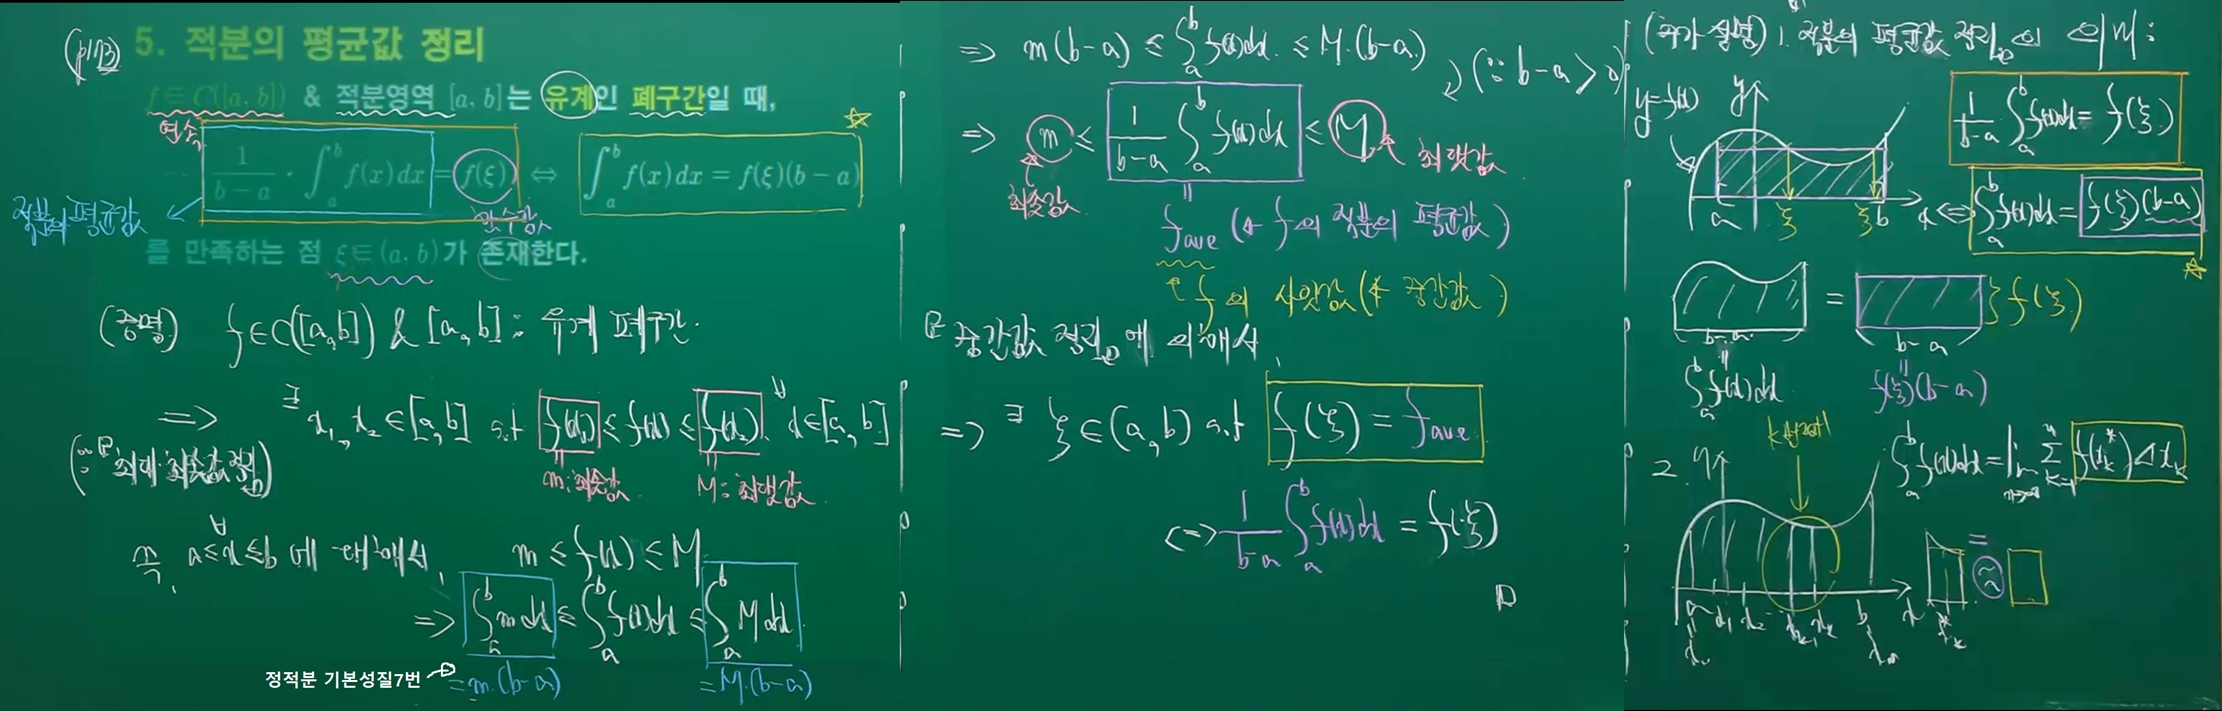 (p173)
5. 적분의 평균값 정리
f∈C([a, b]) & 적분영역 [a, b]는 유계인 폐구간일 때,
연속
1/(b−a) · ∫_a^b f(x)dx = f(ξ) ⇔ ∫_a^b f(x)dx = f(ξ)(b−a)
적분의 평균값
함수값
를 만족하는 점 ξ∈(a, b)가 존재한다.
(증명) f∈C([a,b]) & [a,b] : 유계 폐구간.
⇒ ∃x₁, x₂∈[a,b] s.t f(x₁) ≤ f(x) ≤ f(x₂). ∀x∈[a,b]
(∵ 최대·최솟값 정리)
m:최솟값 M:최댓값
즉, ∀a≤x≤b 에 대해서, m ≤ f(x) ≤ M
⇒ ∫_a^b m dx ≤ ∫_a^b f(x)dx ≤ ∫_a^b M dx
정적분 기본성질7번
= m·(b−a) = M·(b−a)
⇒ m(b−a) ≤ ∫_a^b f(x)dx ≤ M·(b−a)
(∵ b−a > 0)
⇒ m ≤ 1/(b−a) ∫_a^b f(x)dx ≤ M
최솟값 최댓값
f_ave (← f의 적분의 평균값)
f의 사잇값 (← 중간값)
중간값 정리에 의해서
⇒ ∃ξ∈(a,b) s.t f(ξ) = f_ave
⇔ 1/(b−a) ∫_a^b f(x)dx = f(ξ)
□
(추가 설명) 1. 적분의 평균값 정리의 의미 :
y=f(x) y
1/(b−a) ∫_a^b f(x)dx = f(ξ)
a ξ ξ b x
⇔ ∫_a^b f(x)dx = f(ξ)(b−a)
= f(ξ)
b−a b−a
∫_a^b f(x)dx f(ξ)(b−a)
k번째
2. y
∫_a^b f(x)dx = lim_{n→∞} Σ_{k=1}^n f(x_k*)Δx_k
= ≈
a x₁ x₂ x_{k-1} x_k b x x_k*
x₀ x_n